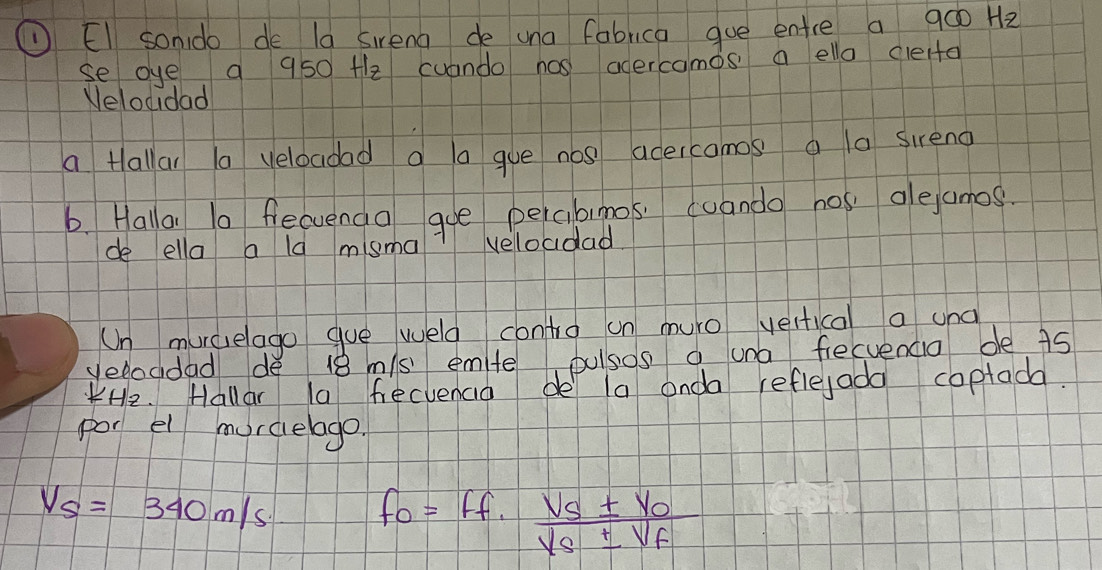 ① El sonido de la sirena de una fabrica que entre a 900 Hz
se oye a 950 Hz cuando nos acercamos a ella cierta
Velocidad
a Hallar la velocidad a la que nos acercamos a la sirena
b. Halla la frecuencia que percibimos cuando nos alejamos.
de ella a la misma velocidad
Un murcielago que vuela contra un muro vertical a una
velocidad de 18 m/s emite pulsos a una frecuencia de 75
KHz. Hallar la frecuencia de la onda reflejada captada.
por el murcielago.
Vs = 340 m/s. fo = ff. Vs ± Vo
Vs ± Vf